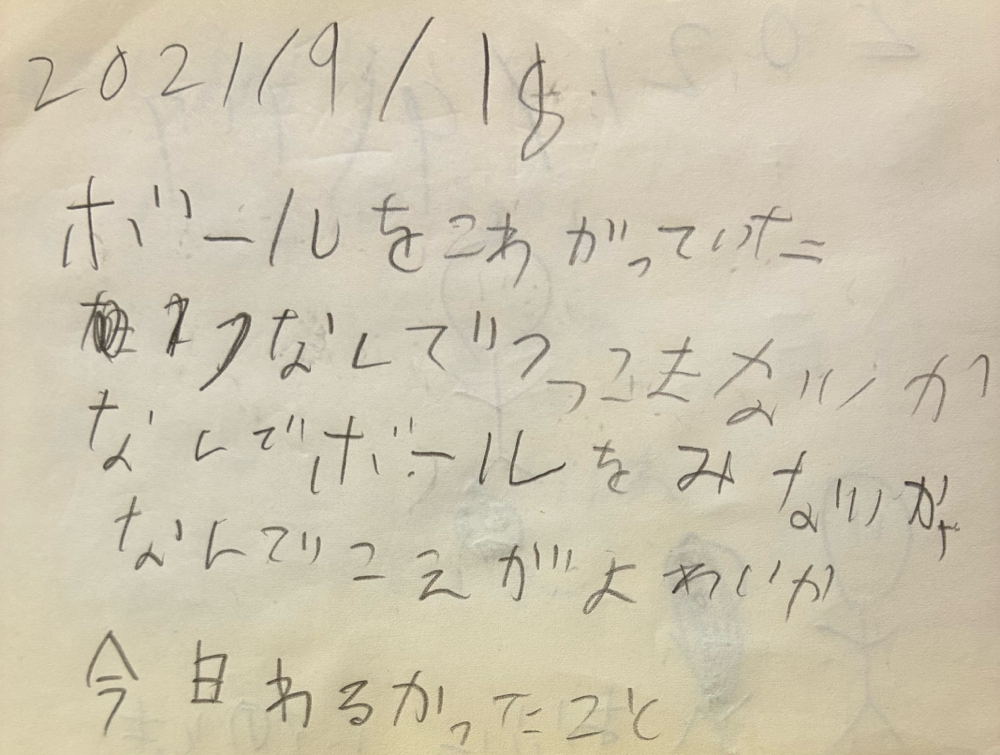 2021/9/18
ボールをこわがっていた
なんでつっこまないか
なんでボールをみないか
なんでこえがよわいか
今日わるかったこと